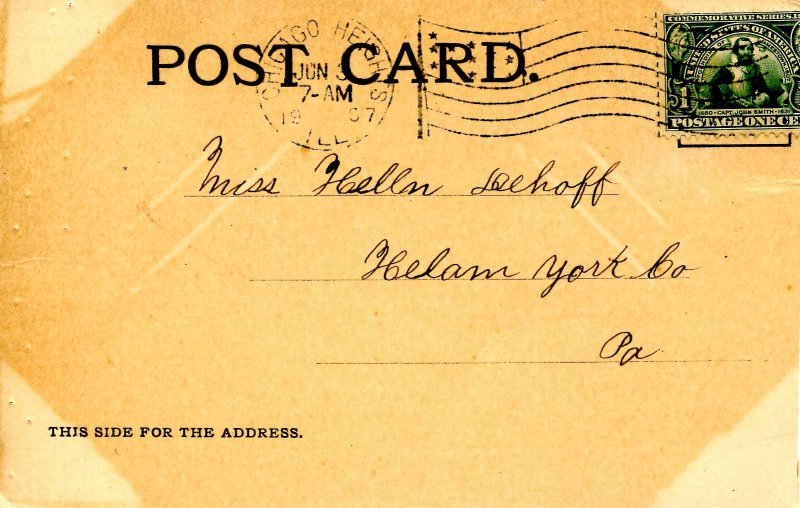 POST CARD.
CHICAGO HEIGHTS
JUN 3
7-AM
1907
ILL.
COMMEMORATIVE SERIES
UNITED STATES OF AMERICA
1580 • CAPT. JOHN SMITH • 1631
1 POSTAGE ONE CE
Miss Helln Dehoff
Helam York Co
Pa
THIS SIDE FOR THE ADDRESS.